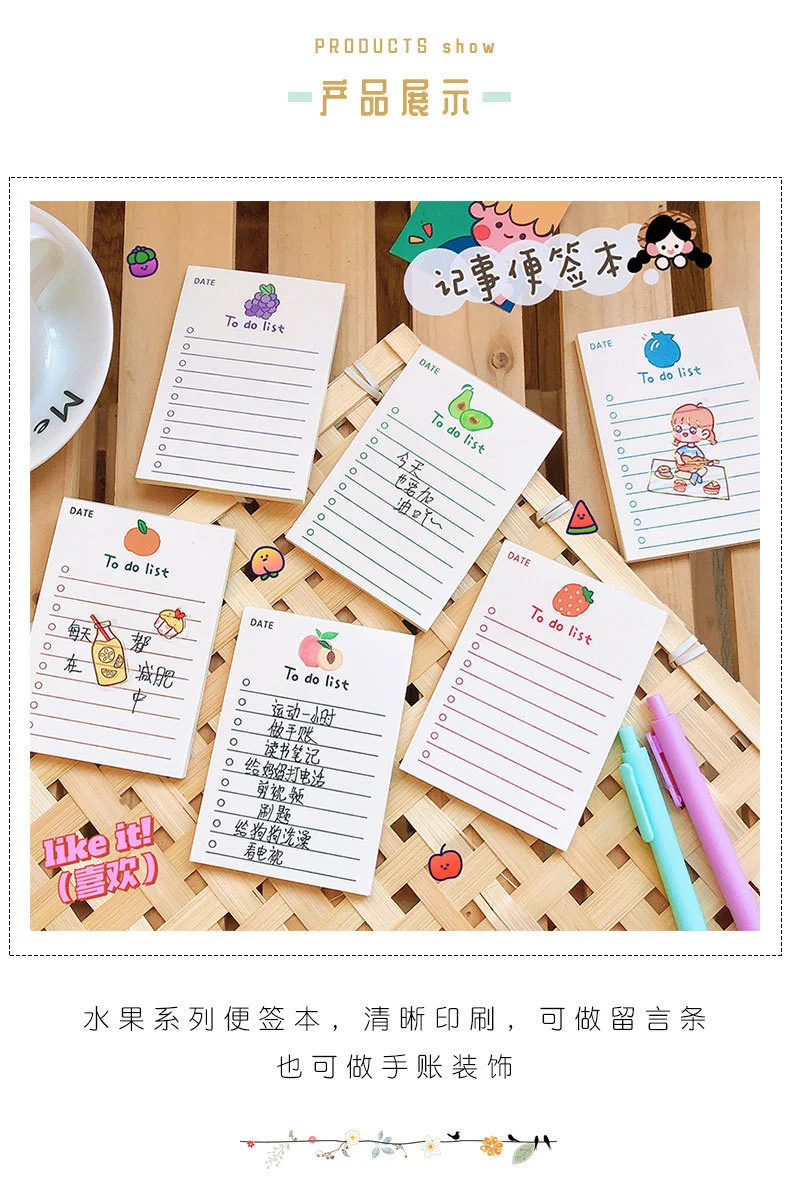 PRODUCTS show
产品展示
记事便签本
DATE
To do list
DATE
To do list
今天
也要加
油吖~
DATE
To do list
DATE
To do list
每天 都
在 减肥
中
DATE
To do list
运动一小时
做手账
读书笔记
给妈妈打电话
剪视频
刷题
给狗狗洗澡
看电视
DATE
To do list
Me
like it!
(喜欢)
水果系列便签本，清晰印刷，可做留言条
也可做手账装饰